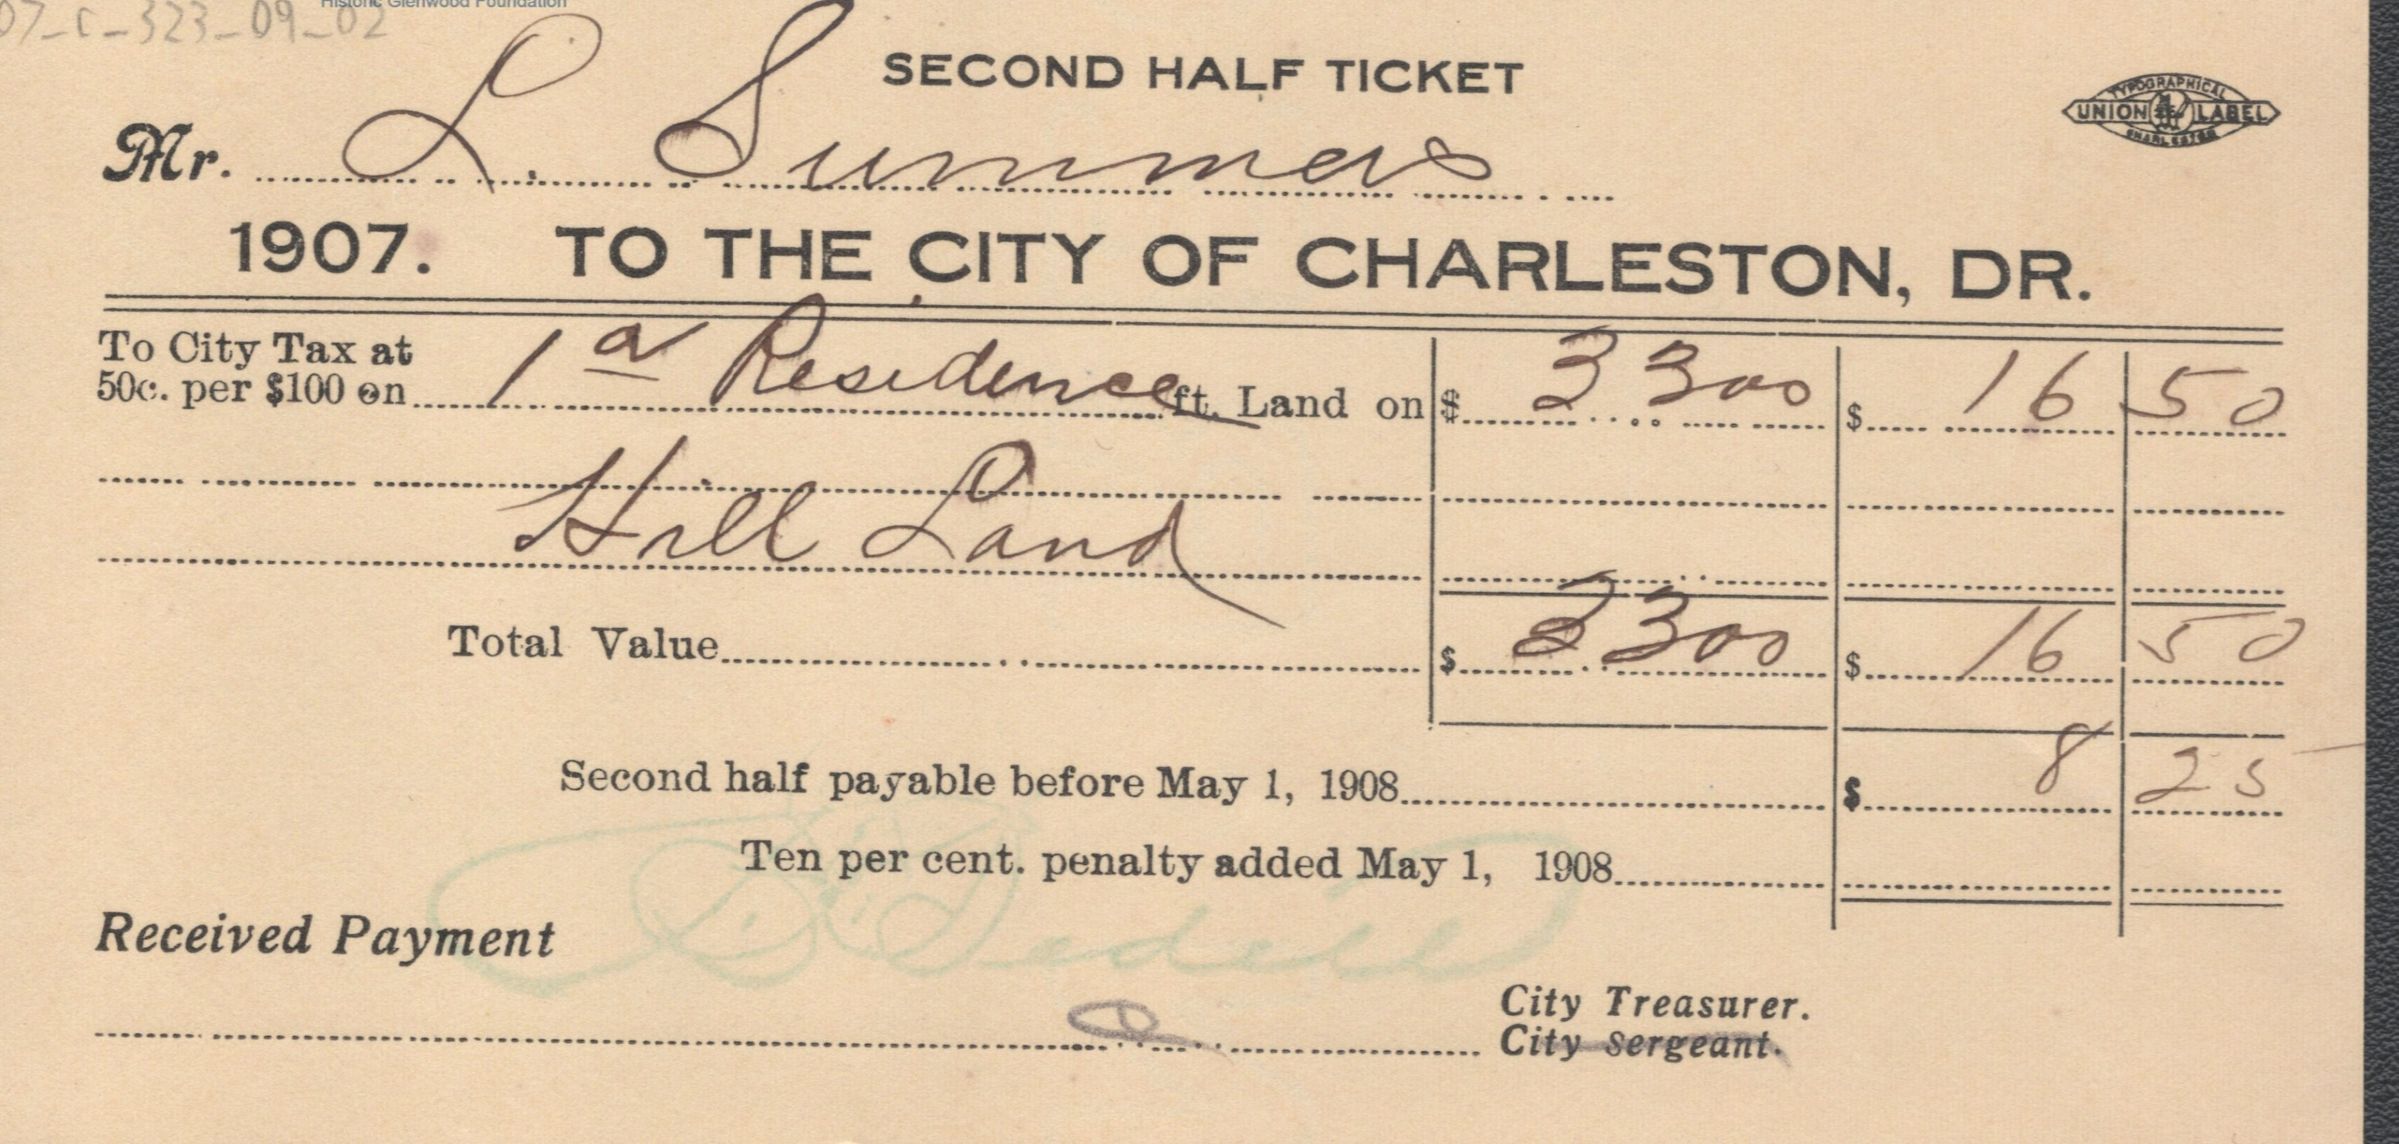 Historic Glenwood Foundation
07_c_323_09_02
SECOND HALF TICKET
TYPOGRAPHICAL
UNION LABEL
CHARLESTON
Mr. L. Summers
1907. TO THE CITY OF CHARLESTON, DR.
To City Tax at
50c. per $100 on 1 a Residence ft. Land on $ 3300 $ 16 50
Hill Land
Total Value $ 3300 $ 16 50
Second half payable before May 1, 1908 $ 8 25
Ten per cent. penalty added May 1, 1908
Received Payment
City Treasurer.
City Sergeant.